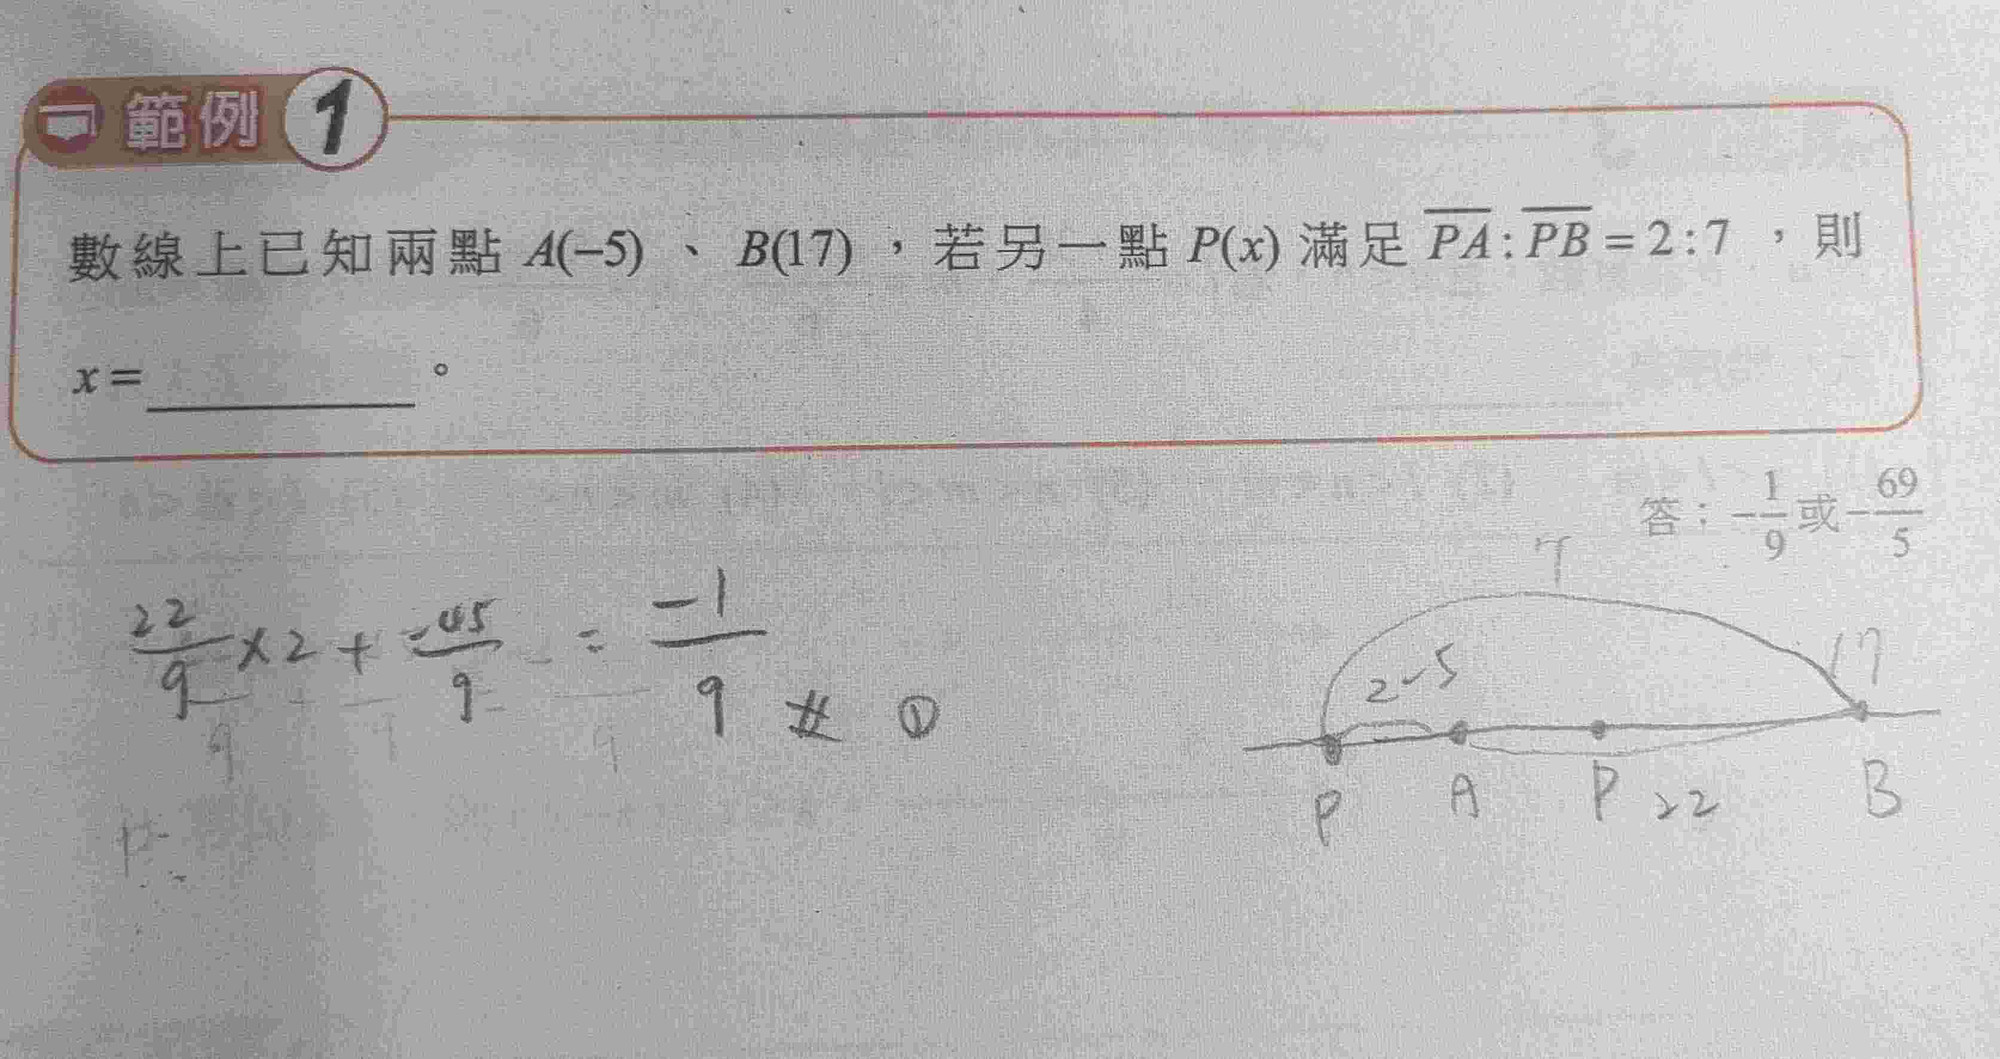 範例 1
數線上已知兩點 A(−5)、B(17),若另一點 P(x) 滿足 \overline{PA}:\overline{PB}=2:7,則
x=________。
答:-\frac{1}{9}或-\frac{69}{5}
\frac{22}{9}×2+\frac{-45}{9}=\frac{-1}{9} # ①
7
2 -5 17
P A P 22 B